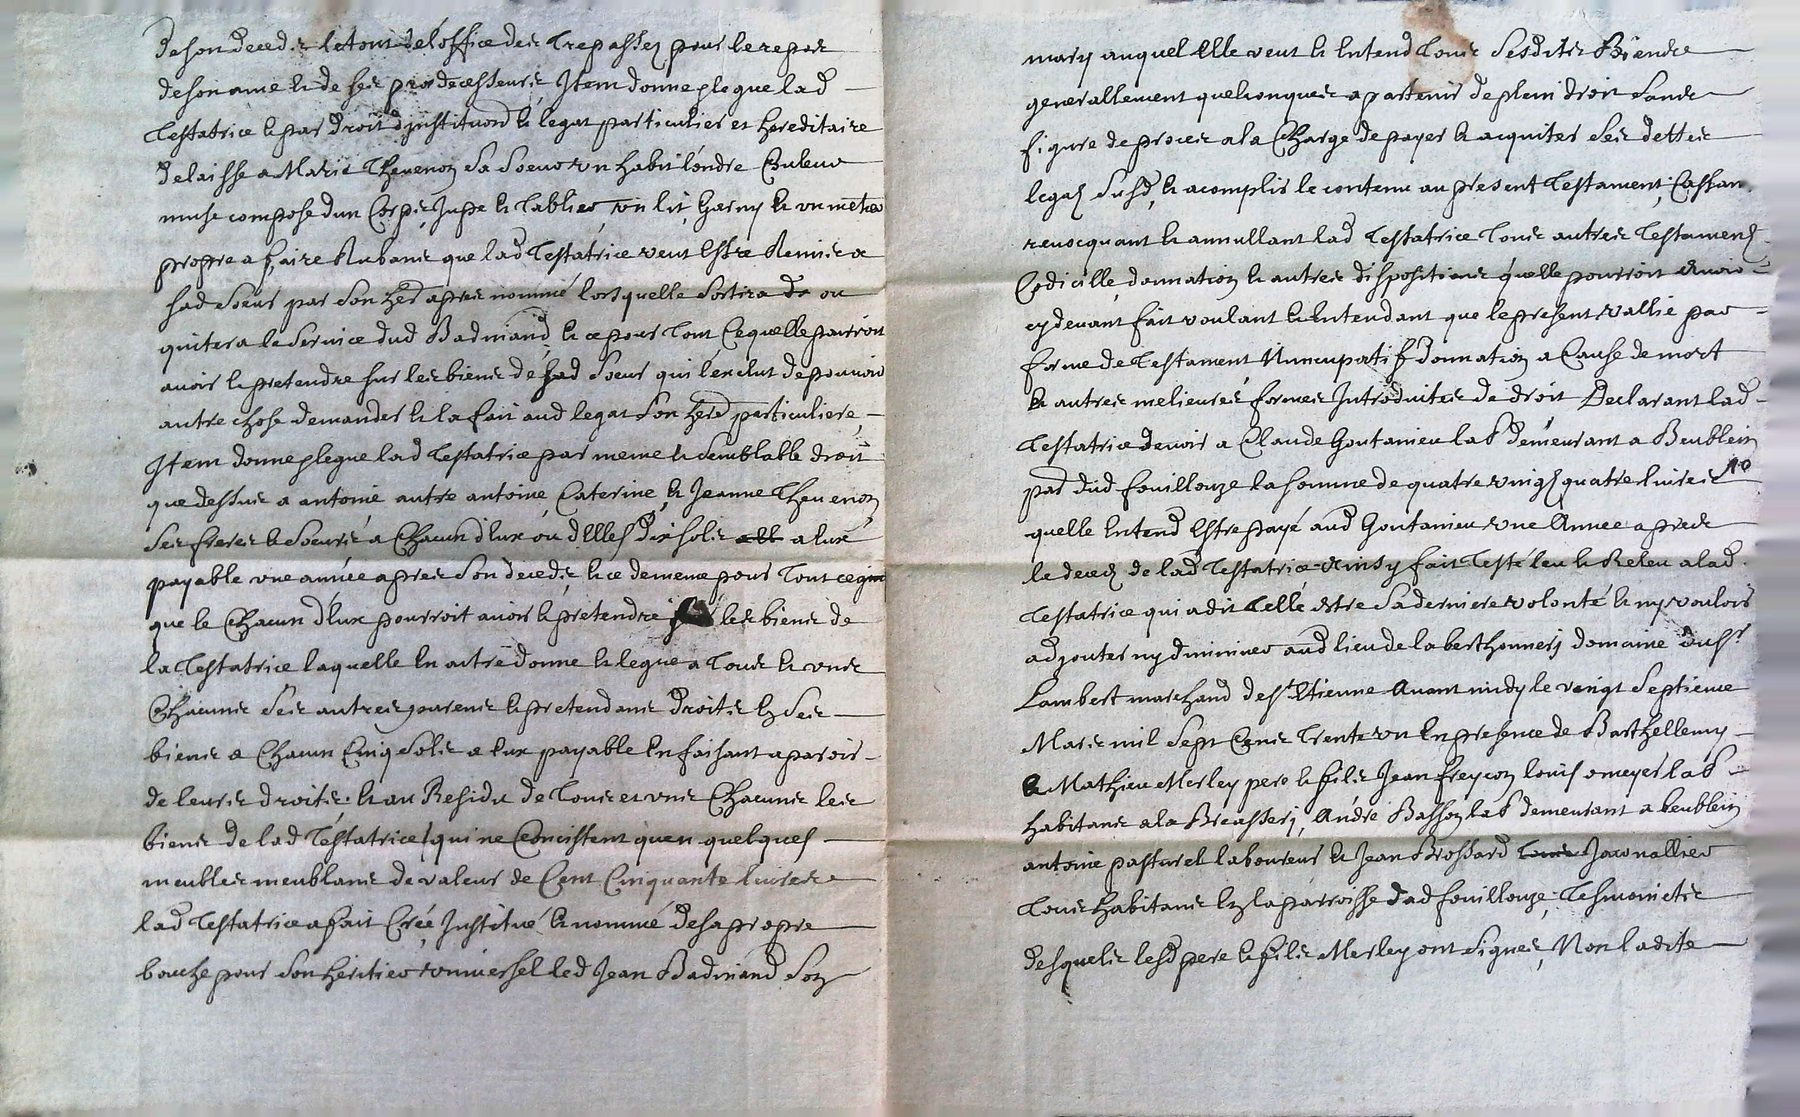 de son deceds le tout de l'office des Trepassez pour le repos
de son ame & de ses prédecesseurs Item donne & legue lad
Testatrice & par droit d'jnstitution & legat particulier et hereditaire
delaisse a Marie Thevenon sa soeur un habit l'endre Couleur
muse compose d'un Corps, Jupe & Tablier, un lit garny & un métier
propre a faire Rubans que lad Testatrice veut Estre Remis a
sad soeur par son herd apres nommé lorsquelle sortira de ou
quitera le service dud Badniand & ce pour Tout Cequelle pourroit
avoir & pretendre sur les biens de sad soeur qui l'exclut de pouvoir
autre chose demander & la fait aud legat son hered particuliere
Item donne & legue lad Testatrice par meme & semblable droit
que dessus a antoine autre antoine, Caterine, & Jeanne Thevenon
ses freres & soeurs a Chacun d'Eux ou d'Elles dix sols a eux
payable une année apres son deceds, & ce de meme pour Tout ce
que le Chacun d'Eux pourroit avoir & pretendre les biens de
la Testatrice laquelle En autre donne & legue a Tous & uns
Chacuns ses autres parens & pretendans droits En ses
biens a Chacun Cinq sols a Eux payable En faisant aparoir
de leurs droits. & au Residu de Tous et uns Chacuns les
biens de lad Testatrice qui ne Concistent qu'en quelques
meubles meublans de valeur de Cent Cinquante livres
lad Testatrice a fait Créé Institué & nommé de sa propre
bouche pour son héritier universel led Jean Badniand son
mary auquel Elle veut & Entend Tous sesdits Biens
generallement quelconques apartenir de plein droit sans
figure de proces a la Charge de payer & acquiter ses dettes
legaz susd, & acomplir le contenu au present Testament, Cassan
revocquant & annullant lad Testatrice Tous autres Testamens
Codicille, donnation & autres dispositions qu'elle pourroit avoir
cydevant fait voulant & Entendant que le present vallie par
forme de Testament Nuncupatif donnation a Cause de mort
& autres melieures formes Introduites de droit Declarant lad
Testatrice devoir a Claude Goutanieu lab demeurant a Beublein
par dud fouillouze la somme de quatre vingt quatre livres
quelle Entend Estre payé aud Goutanieu une Année apres
le deced de lad Testatrice ainsy fait Testé leu & Releu a lad.
Testatrice qui a dit Telle Estre sa derniere volonté & ny vouloir
adjouter ny diminuer aud lieu de la berthonnery domaine du sr.
Lambert marchand de St. Etienne Avant midy le vingt septieme
Mars mil sept Cens Trente un En presence de Barthellemy
& Mathieu Merley pere & fils Jean freycon louis omeyer lab
habitans a la Breassery, André Basson lab demeurant a beublein
antoine pasturel laboureur & Jean Brossard Journallier
Tous habitans En la parroisse dud fouillouze, Tesmoins
desquels lesd pere & fils Merley ont signes, Non ladite